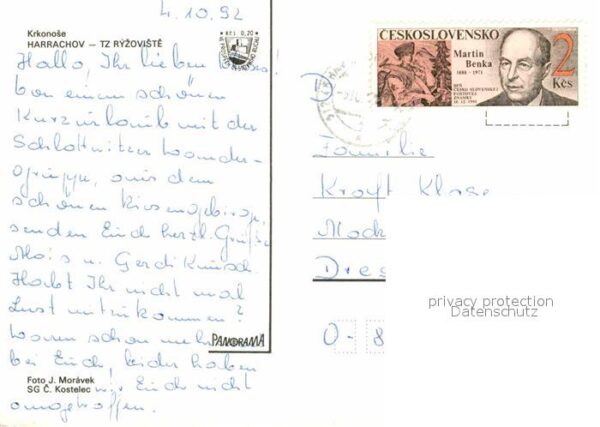 4.10.92
Krkonoše
HARRACHOV – TZ RÝŽOVIŠTĚ
Kčs 0,20
Hallo, Ihr lieben
bei einem schönen
Kurzurlaub mit der
Schlottwitzer Wander-
gruppe, aus dem
schönen Riesengebirge,
senden Euch herzl. Grüße
u. Gerdi
Habt Ihr nicht mal
Lust mitzukommen?
Waren schon mehr
bei Euch, leider haben
wir Euch nicht
angetroffen.
PANORAMA
Foto J. Morávek
SG Č. Kostelec
ČESKOSLOVENSKO
Martin
Benka
1888 – 1971
2
Kčs
DEŇ
ČESKO-SLOVENSKEJ
POŠTOVEJ
ZNÁMKY
18. 12. 1991
Familie
Kraft Klaus
Mock
Dres
O - 8
privacy protection
Datenschutz